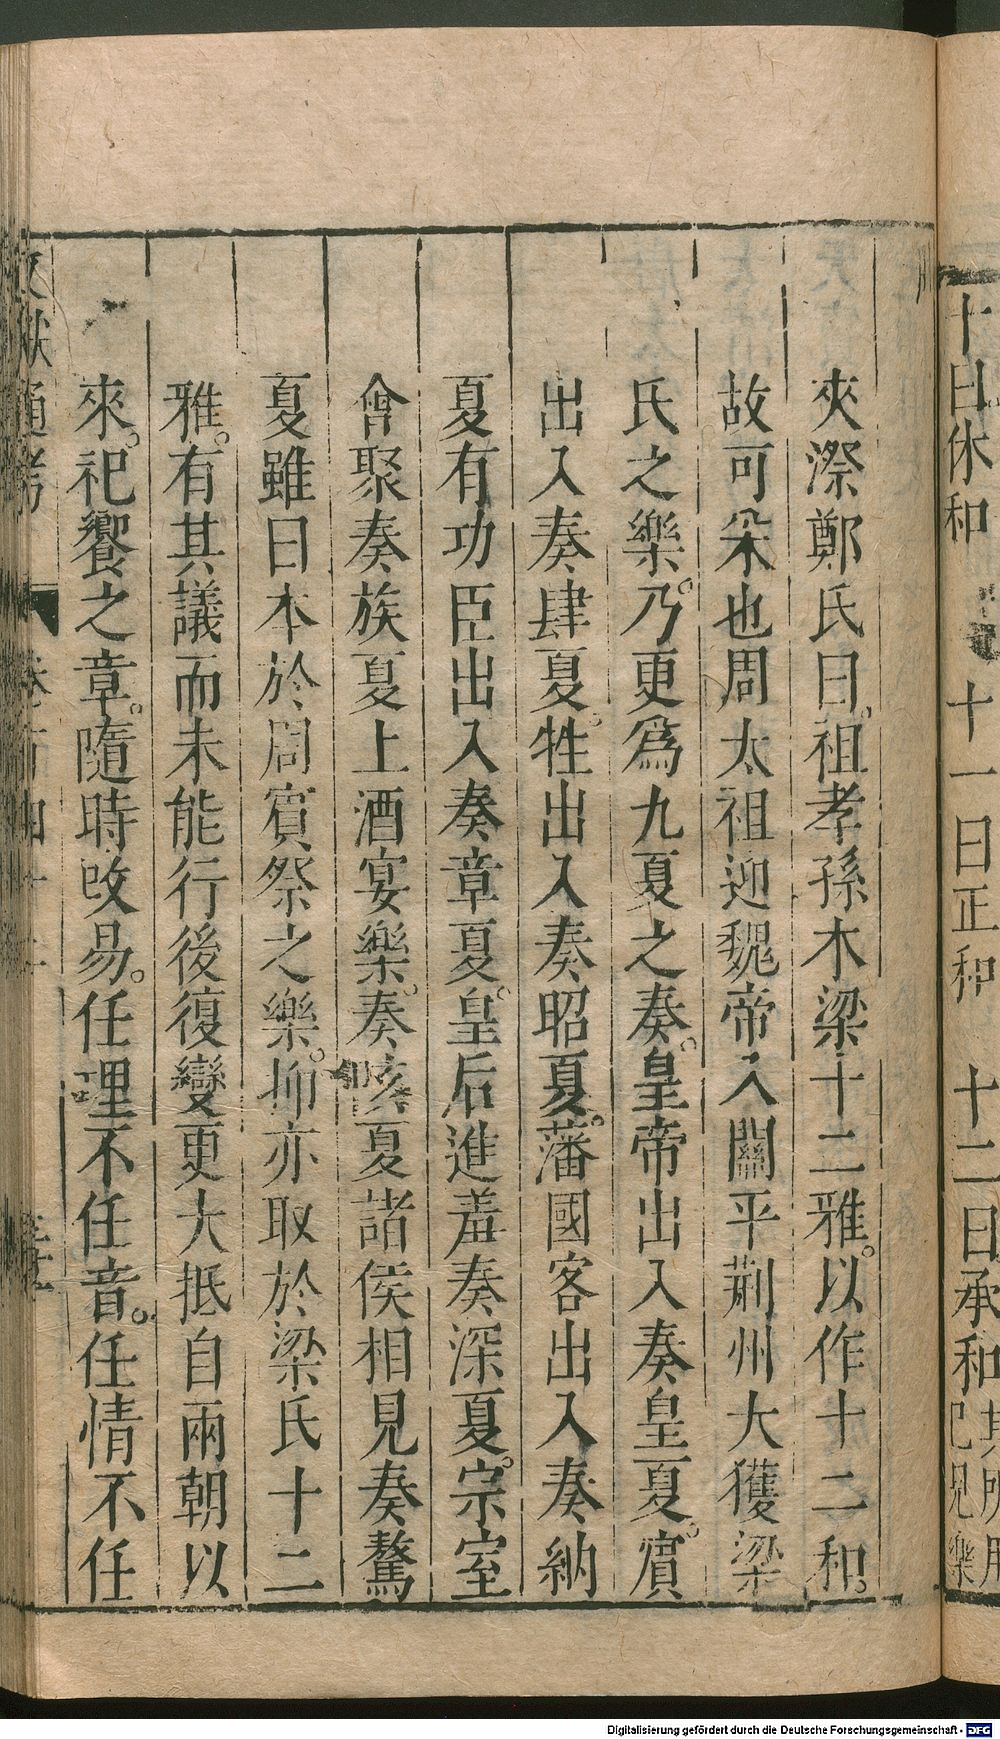 十日休和　十一日正和　十二日承和
夾漈鄭氏曰。祖孝孫本梁十二雅。以作十二和。
故可采也周太祖迎魏帝入關平荆州大獲梁
氏之樂。乃更爲九夏之奏。皇帝出入奏皇夏。賔
出入奏肆夏。牲出入奏昭夏。藩國客出入奏納
夏有功臣出入奏章夏。皇后進羞奏深夏。宗室
會聚奏族夏上酒宴樂。奏陔夏諸侯相見奏驁
夏雖曰本於周賔祭之樂。抑亦取於梁氏十二
雅。有其議而未能行後復變更大抵自兩朝以
來。祀饗之章。隨時改易。任理不任音。任情不任
文獻通考　卷百四十二
Digitalisierung gefördert durch die Deutsche Forschungsgemeinschaft - DFG